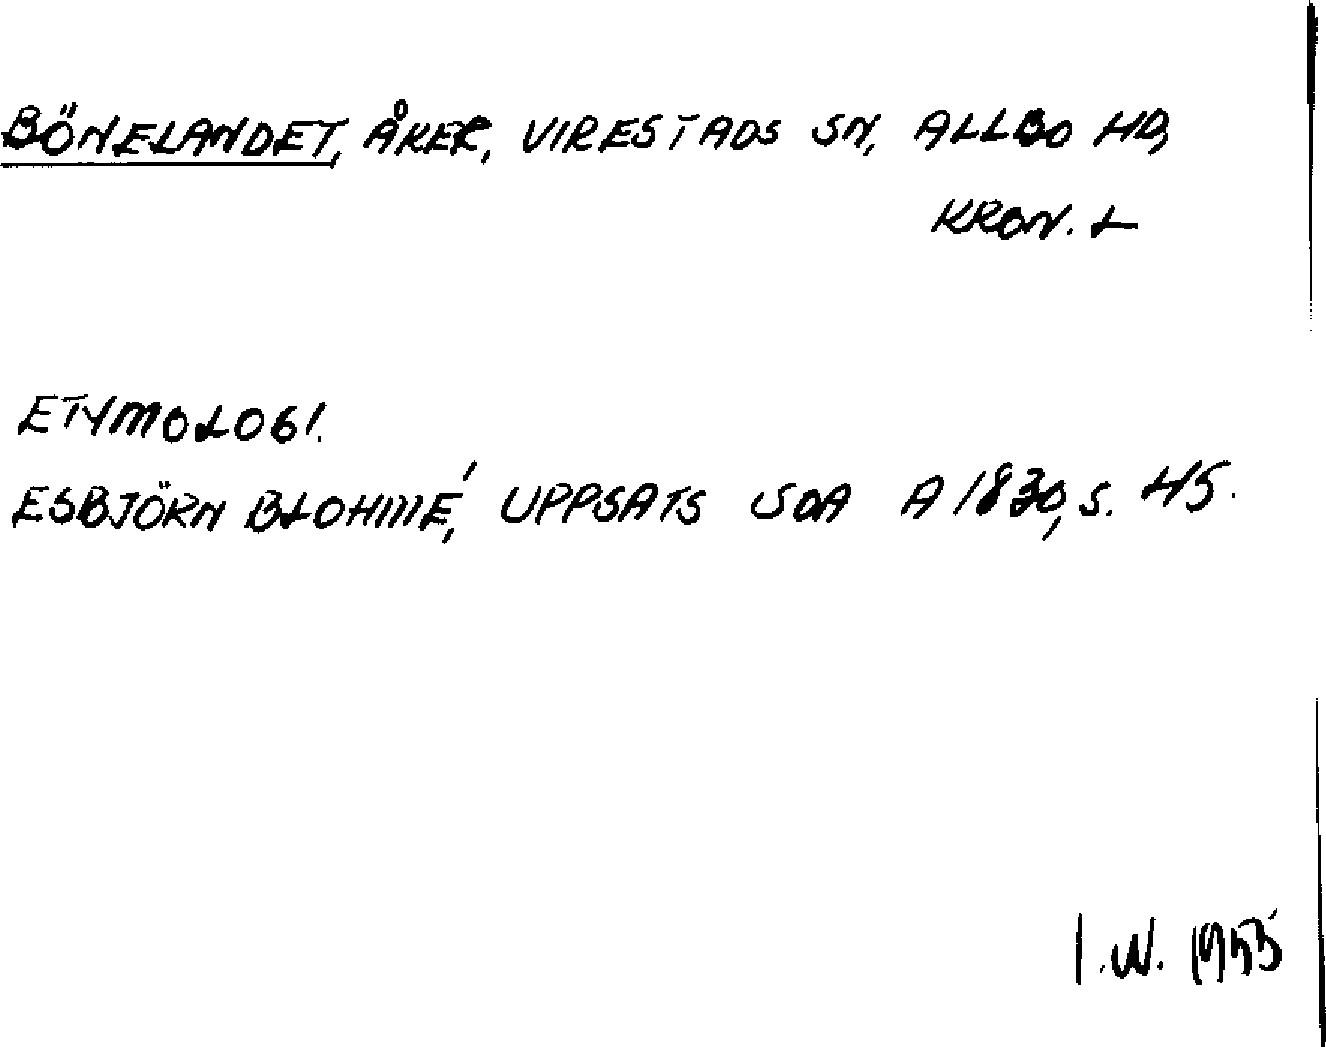 BÖNELANDET, ÅKER, VIRESTADS SN, ALLBO HD,
KRON. L
ETYMOLOGI.
ESBJÖRN BLOHMÉ, UPPSATS SOA A 1830, S. 45.
I.W. 1955